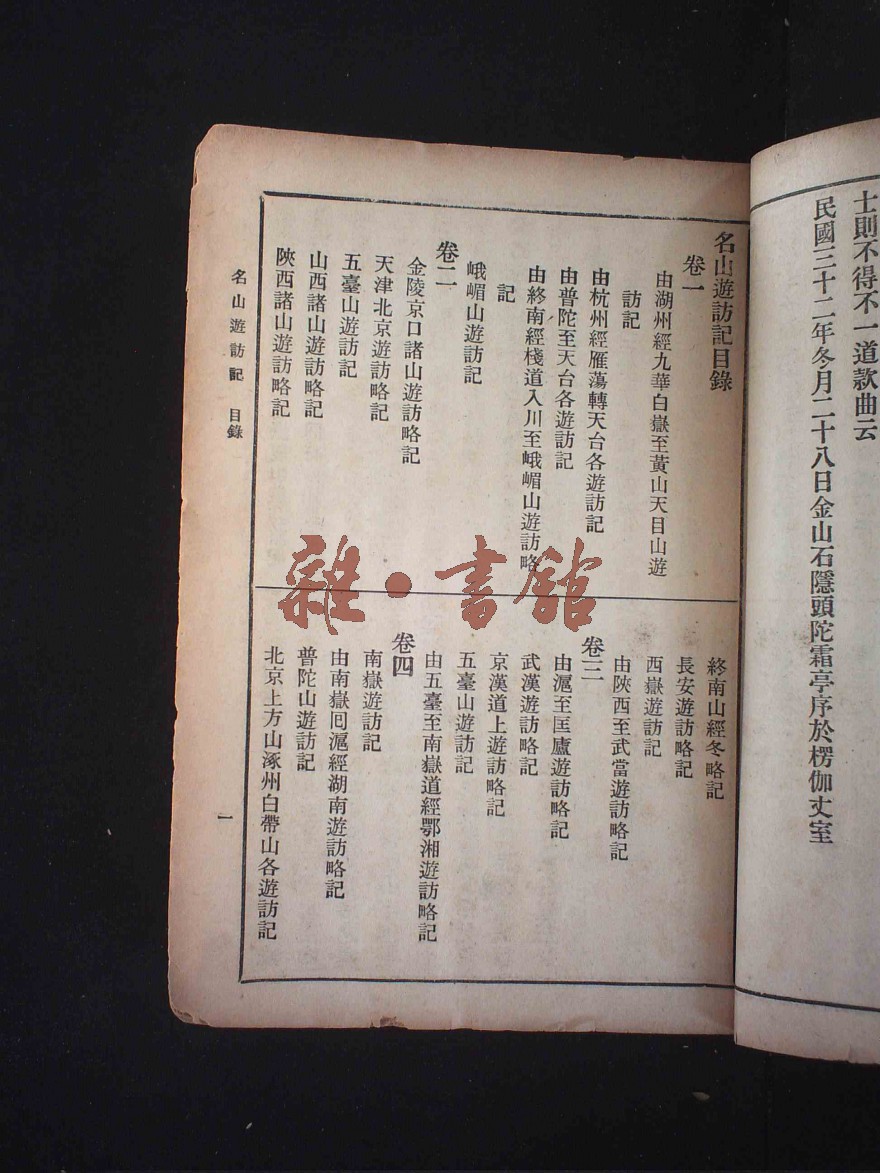 士則不得不一道款曲云
民國三十二年冬月二十八日金山石隱頭陀霜亭序於楞伽丈室
名山遊訪記目錄
卷一
由湖州經九華白嶽至黃山天目山遊
訪記
由杭州經雁蕩轉天台各遊訪記
由普陀至天台各遊訪記
由終南經棧道入川至峨嵋山遊訪略
記
峨嵋山遊訪記
卷二
金陵京口諸山遊訪略記
天津北京遊訪略記
五臺山遊訪記
山西諸山遊訪略記
陝西諸山遊訪略記
終南山經冬略記
長安遊訪略記
西嶽遊訪記
由陝西至武當遊訪略記
卷三
由滬至匡廬遊訪略記
武漢遊訪略記
京漢道上遊訪略記
五臺山遊訪記
由五臺至南嶽道經鄂湘遊訪略記
卷四
南嶽遊訪記
由南嶽囘滬經湖南遊訪略記
普陀山遊訪記
北京上方山涿州白帶山各遊訪記
名山遊訪記 目錄
一
雜·書館